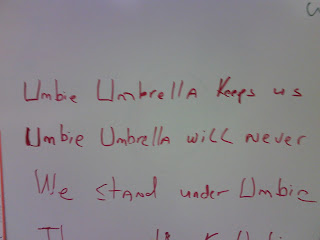 Umbie Umbrella Keeps us
Umbie Umbrella will never
We stand under Umbie